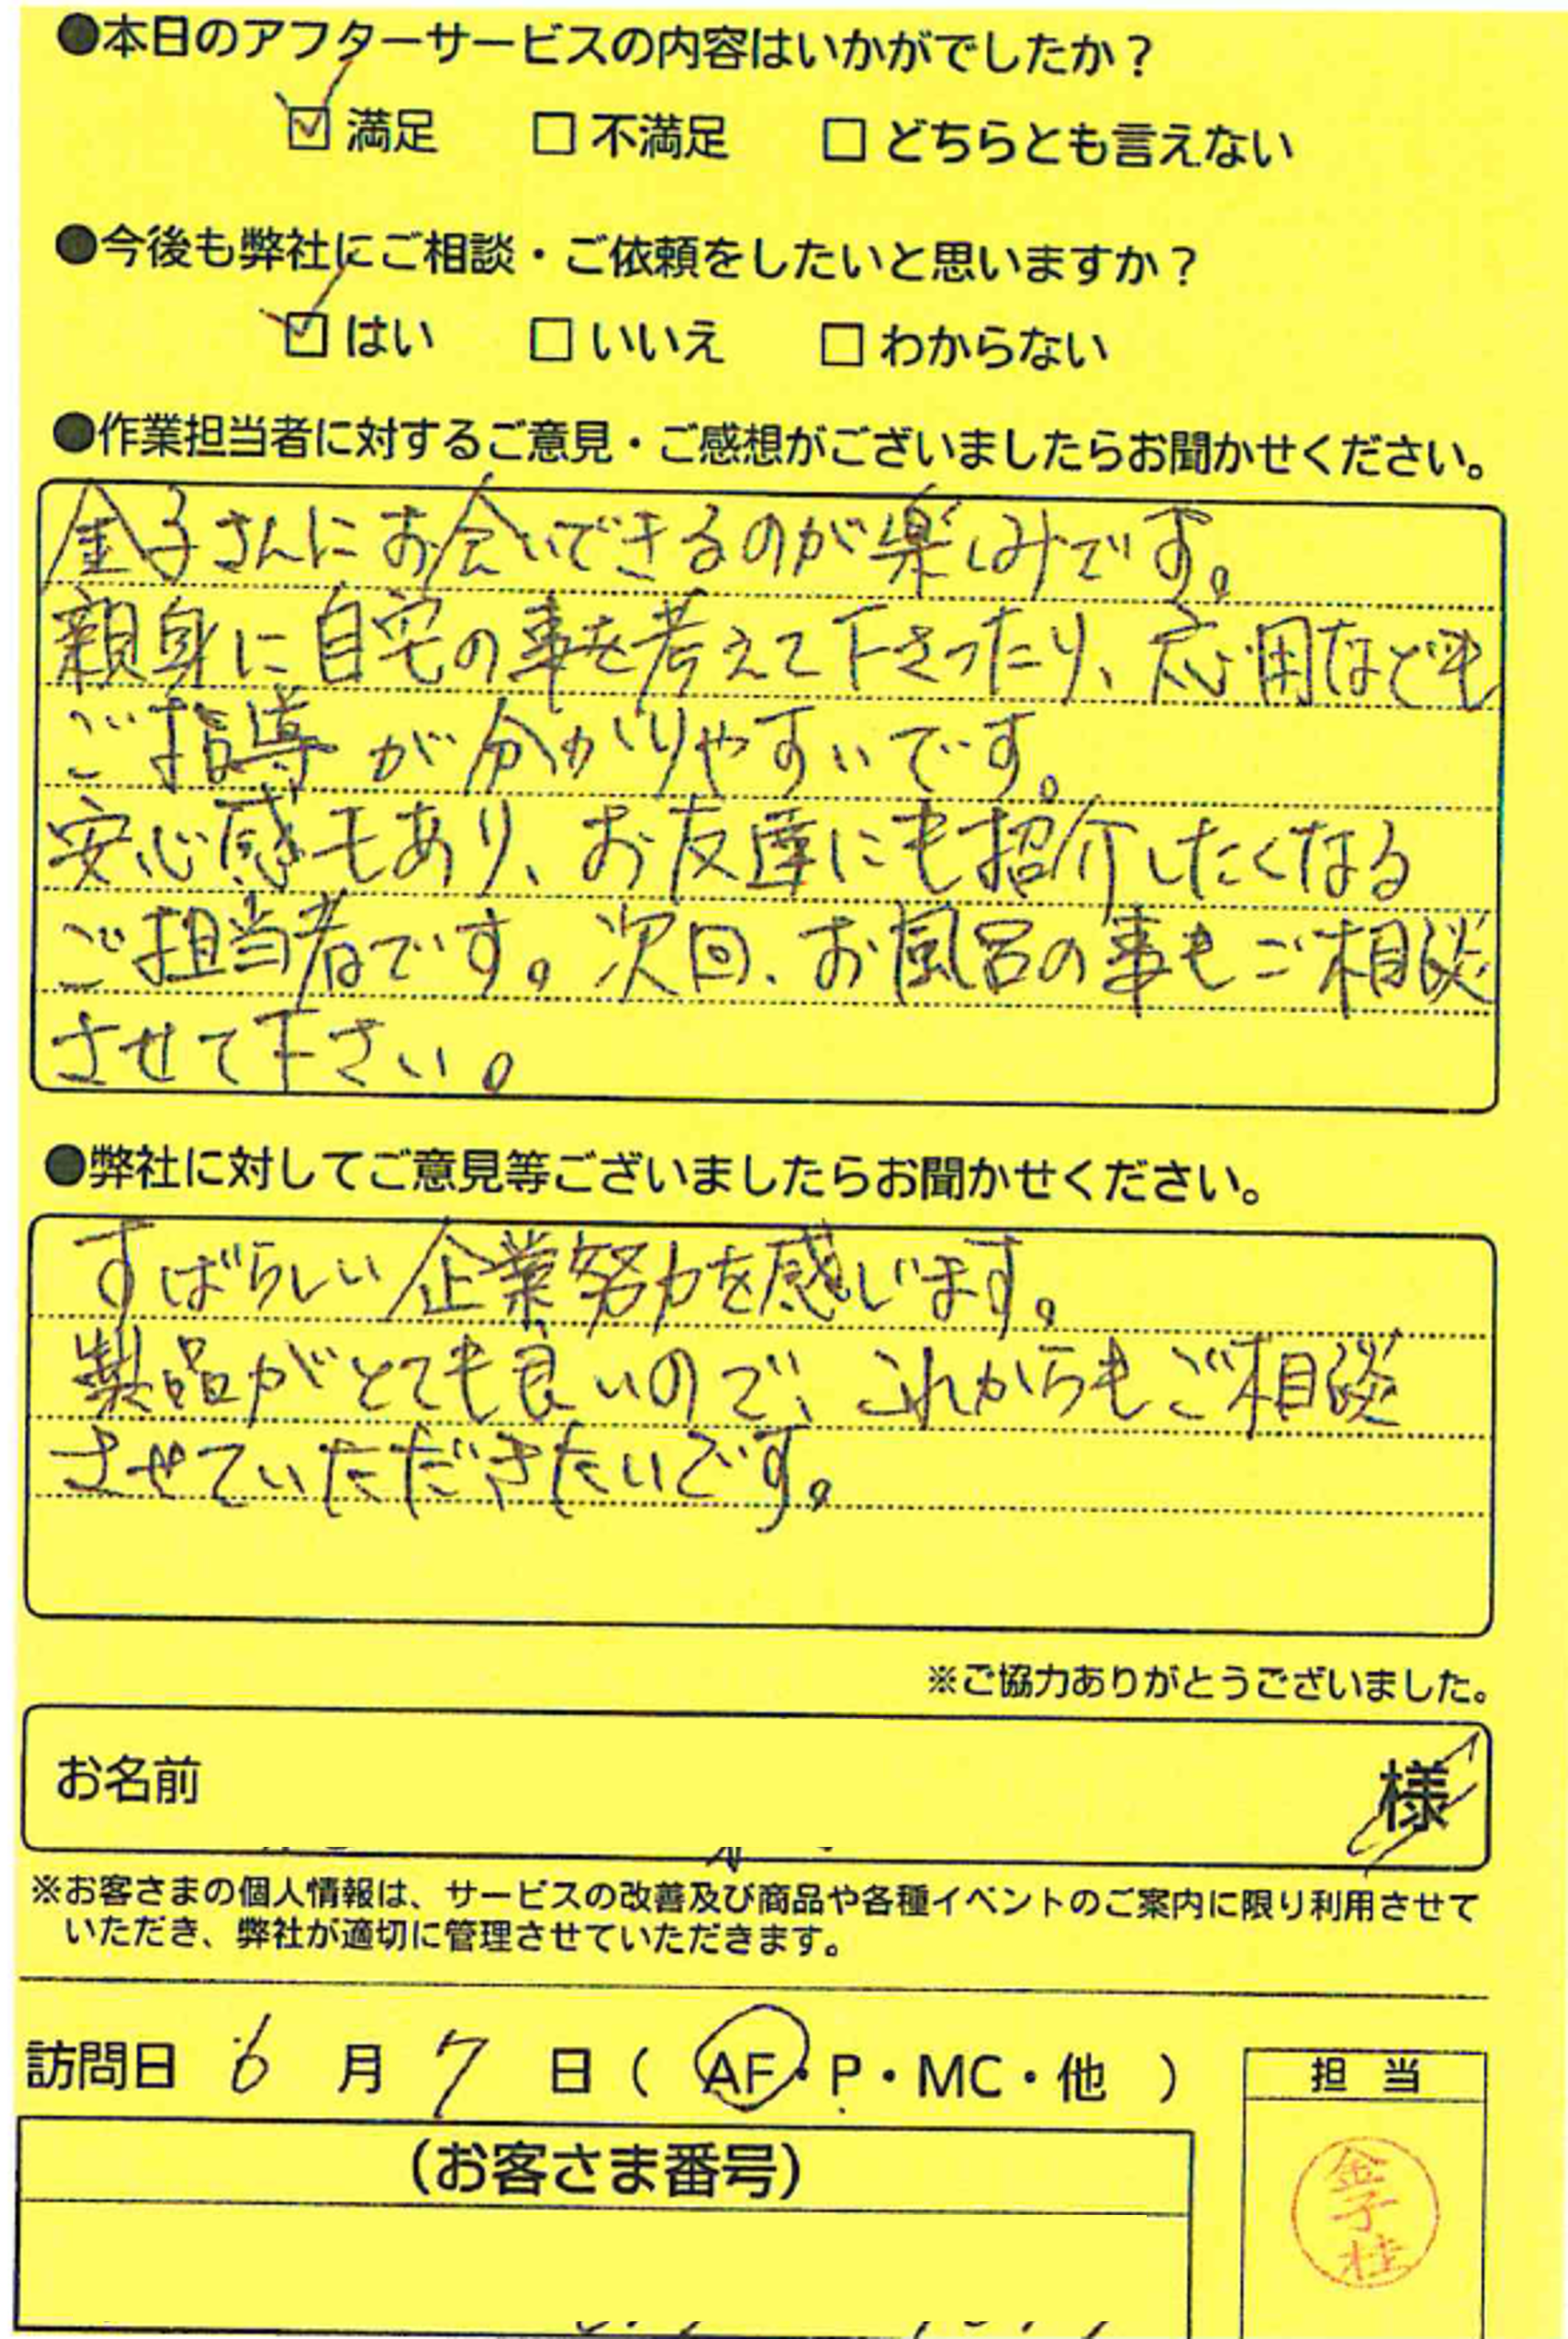 ●本日のアフターサービスの内容はいかがでしたか？
☑満足 □不満足 □どちらとも言えない
●今後も弊社にご相談・ご依頼をしたいと思いますか？
☑はい □いいえ □わからない
●作業担当者に対するご意見・ご感想がございましたらお聞かせください。
金子さんにお会いできるのが楽しみです。
親身に自宅の事を考えて下さったり、応用なども
ご指導が分かりやすいです。
安心感もあり、お友達にも紹介したくなる
ご担当者です。次回、お風呂の事もご相談
させて下さい。
●弊社に対してご意見等ございましたらお聞かせください。
すばらしい企業努力を感じます。
製品がとても良いので、これからもご相談
させていただきたいです。
※ご協力ありがとうございました。
お名前 様
※お客さまの個人情報は、サービスの改善及び商品や各種イベントのご案内に限り利用させて
いただき、弊社が適切に管理させていただきます。
訪問日 6 月 7 日（ AF・P・MC・他 ）
担 当
（お客さま番号）
金子桂